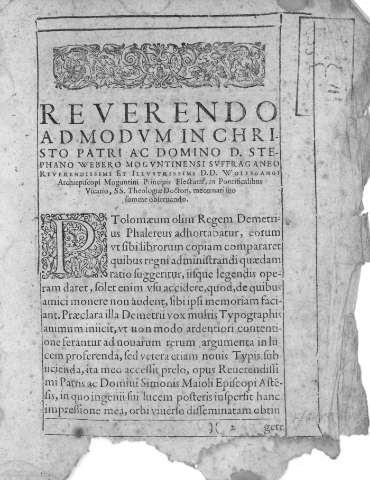 REVERENDO
ADMODVM IN CHRI-
STO PATRI AC DOMINO D. STE-
PHANO WEBERO MOGVNTINENSI SVFFRAGANEO
REVERENDISSIMI ET ILLVSTRISSIMI D.D. WOLFGANGI
Archiepiscopi Moguntini Principis Electoris, in Pontificalibus
Vicario, SS. Theologiæ Doctori, mecœnati suo
summe obseruando.
PTolomæum olim Regem Demetri-
us Phalereus adhortabatur, eorum
vt sibi librorum copiam compararet
quibus regni administrandi quædam
ratio suggeritur, iisque legendis ope-
ram daret, solet enim vsu accidere, quod, de quibus
amici monere non audent, sibi ipsi memoriam faci-
ant. Præclara illa Demetrii vox multis Typographis
animum iniicit, vt non modo ardentiori contenti-
one ferantur ad nouarum rerum argumenta in lu-
cem proferenda, sed vetera etiam nouis Typis sub-
iicienda, ita meo accessit prelo, opus Reuerendissi
mi Patris ac Domini Simonis Maioli Episcopi Astē-
sis, in quo ingenii sui lucem posteris inspersit hanc
impressione mea, orbi viuerso disseminatam obtin
)( 2 gere